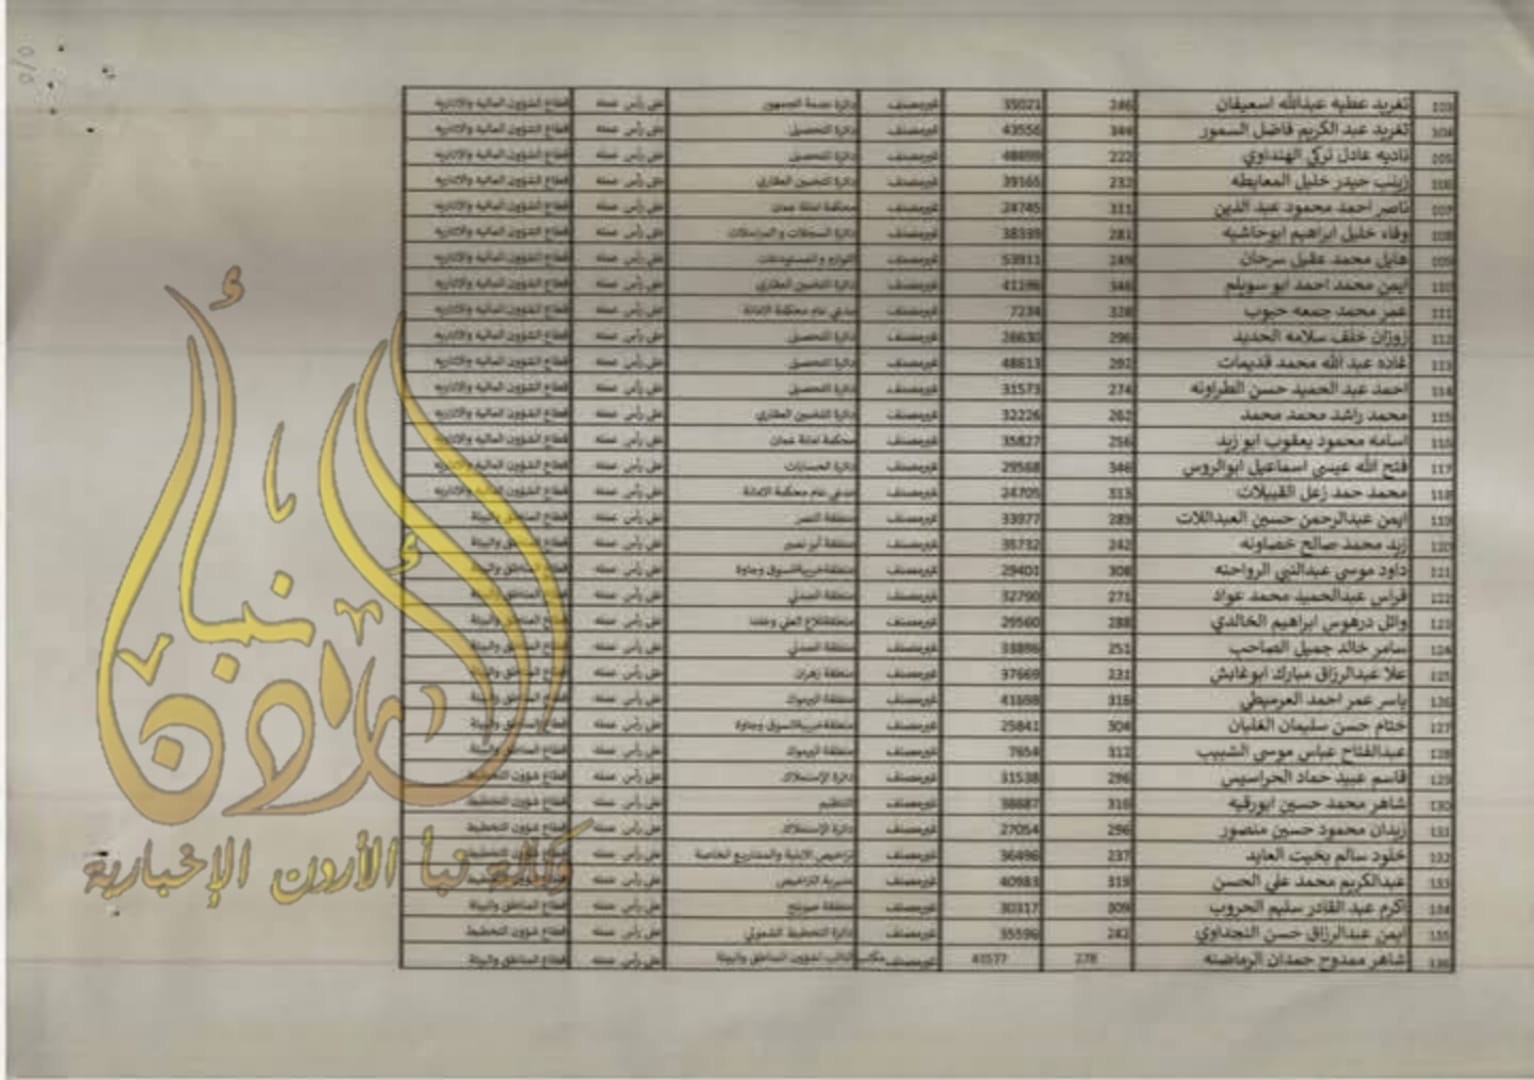 103 تغريد عطيه عبدالله اسعيفان 246 35021 غيرمصنف دائرة خدمة الجمهور على رأس عمله قطاع الشؤون المالية والادارية
104 تغريد عبد الكريم فاضل السمور 344 43556 غيرمصنف دائرة التحصيل على رأس عمله قطاع الشؤون المالية والادارية
105 ناديه عادل تركي الهنداوي 222 48899 غيرمصنف دائرة التحصيل على رأس عمله قطاع الشؤون المالية والادارية
106 زينب حيدر خليل المعايطه 232 39165 غيرمصنف دائرة التخمين العقاري على رأس عمله قطاع الشؤون المالية والادارية
107 ناصر احمد محمود عبد الدين 311 24745 غيرمصنف محكمة امانة عمان على رأس عمله قطاع الشؤون المالية والادارية
108 وفاء خليل ابراهيم ابوحاشيه 281 38339 غيرمصنف دائرة السجلات و المراسلات على رأس عمله قطاع الشؤون المالية والادارية
109 هايل محمد عقيل سرحان 249 53911 غيرمصنف اللوازم و المستودعات على رأس عمله قطاع الشؤون المالية والادارية
110 ايمن محمد احمد ابو سويلم 346 41196 غيرمصنف دائرة التخمين العقاري على رأس عمله قطاع الشؤون المالية والادارية
111 عمر محمد جمعه حبوب 328 7234 غيرمصنف مدعي عام محكمة الامانة على رأس عمله قطاع الشؤون المالية والادارية
112 روزان خلف سلامه الحديد 296 26630 غيرمصنف دائرة التحصيل على رأس عمله قطاع الشؤون المالية والادارية
113 غاده عبد الله محمد قديمات 292 48613 غيرمصنف دائرة التحصيل على رأس عمله قطاع الشؤون المالية والادارية
114 احمد عبد الحميد حسن الطراونه 274 31573 غيرمصنف دائرة التحصيل على رأس عمله قطاع الشؤون المالية والادارية
115 محمد راشد محمد محمد 262 32226 غيرمصنف دائرة التخمين العقاري على رأس عمله قطاع الشؤون المالية والادارية
116 اسامه محمود يعقوب ابو زيد 256 35827 غيرمصنف محكمة امانة عمان على رأس عمله قطاع الشؤون المالية والادارية
117 فتح الله عيسى اسماعيل ابوالروس 346 29568 غيرمصنف دائرة الحسابات على رأس عمله قطاع الشؤون المالية والادارية
118 محمد حمد زعل القبيلات 313 24705 غيرمصنف مدعي عام محكمة الامانة على رأس عمله قطاع الشؤون المالية والادارية
119 ايمن عبدالرحمن حسين العبداللات 289 33977 غيرمصنف منطقة النصر على رأس عمله قطاع المناطق والبيئة
120 زيد محمد صالح خصاونه 242 35732 غيرمصنف منطقة أبو نصير على رأس عمله قطاع المناطق والبيئة
121 داود موسى عبدالنبي الرواحنه 308 29401 غيرمصنف منطقة خريبة السوق وجاوة على رأس عمله قطاع المناطق والبيئة
122 فراس عبدالحميد محمد عواد 271 32790 غيرمصنف منطقة العبدلي على رأس عمله قطاع المناطق والبيئة
123 وائل درهوس ابراهيم الخالدي 288 29560 غيرمصنف منطقة تلاع العلي وخلدا على رأس عمله قطاع المناطق والبيئة
124 سامر خالد جميل الصاحب 251 33896 غيرمصنف منطقة العبدلي على رأس عمله قطاع المناطق والبيئة
125 علا عبدالرزاق مبارك ابوغايش 231 37669 غيرمصنف منطقة زهران على رأس عمله قطاع المناطق والبيئة
126 ياسر عمر احمد العرميطي 316 41698 غيرمصنف منطقة اليرموك على رأس عمله قطاع المناطق والبيئة
127 ختام حسن سليمان الغليان 304 25841 غيرمصنف منطقة خريبة السوق وجاوة على رأس عمله قطاع المناطق والبيئة
128 عبدالفتاح عباس موسى الشبيب 312 7654 غيرمصنف منطقة اليرموك على رأس عمله قطاع المناطق والبيئة
129 قاسم عبيد حماد الحراسيس 296 31538 غيرمصنف دائرة الإستملاك على رأس عمله قطاع شؤون التخطيط
130 شاهر محمد حسين ابورقيه 316 38687 غيرمصنف التنظيم على رأس عمله قطاع شؤون التخطيط
131 زيدان محمود حسين منصور 296 27054 غيرمصنف دائرة الإستملاك على رأس عمله قطاع شؤون التخطيط
132 خلود سالم بخيت العايد 237 36496 غيرمصنف تراخيص الابنية والمشاريع الخاصة على رأس عمله قطاع شؤون التخطيط
133 عبدالكريم محمد علي الحسن 319 40983 غيرمصنف مديرية التراخيص على رأس عمله قطاع شؤون التخطيط
134 اكرم عبد القادر سليم الحروب 309 30317 غيرمصنف منطقة صويلح على رأس عمله قطاع المناطق والبيئة
135 ايمن عبدالرزاق حسن النجداوي 242 35596 غيرمصنف دائرة التخطيط الشمولي على رأس عمله قطاع شؤون التخطيط
136 شاهر ممدوح حمدان الرماضنه 278 41577 غيرمصنف مكتب النائب لشؤون المناطق والبيئة على رأس عمله قطاع المناطق والبيئة
نبأ الأردن
وكالة نبأ الأردن الإخبارية